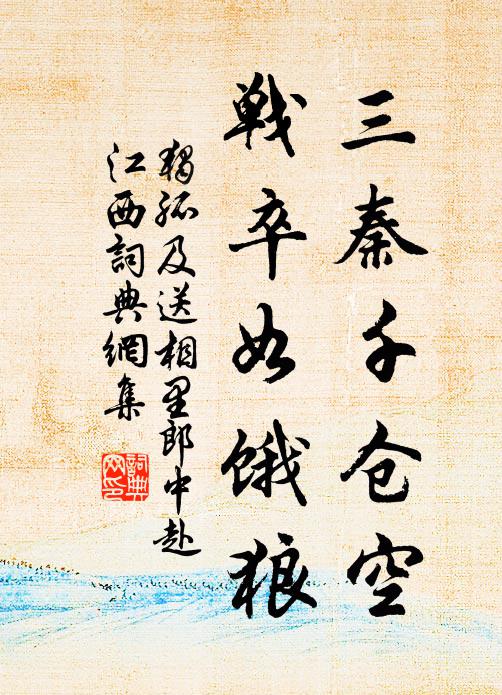 三秦千仓空
戦卒如饿狼
独孤及送相里郎中赴
江西詞典網集
詞典
网印